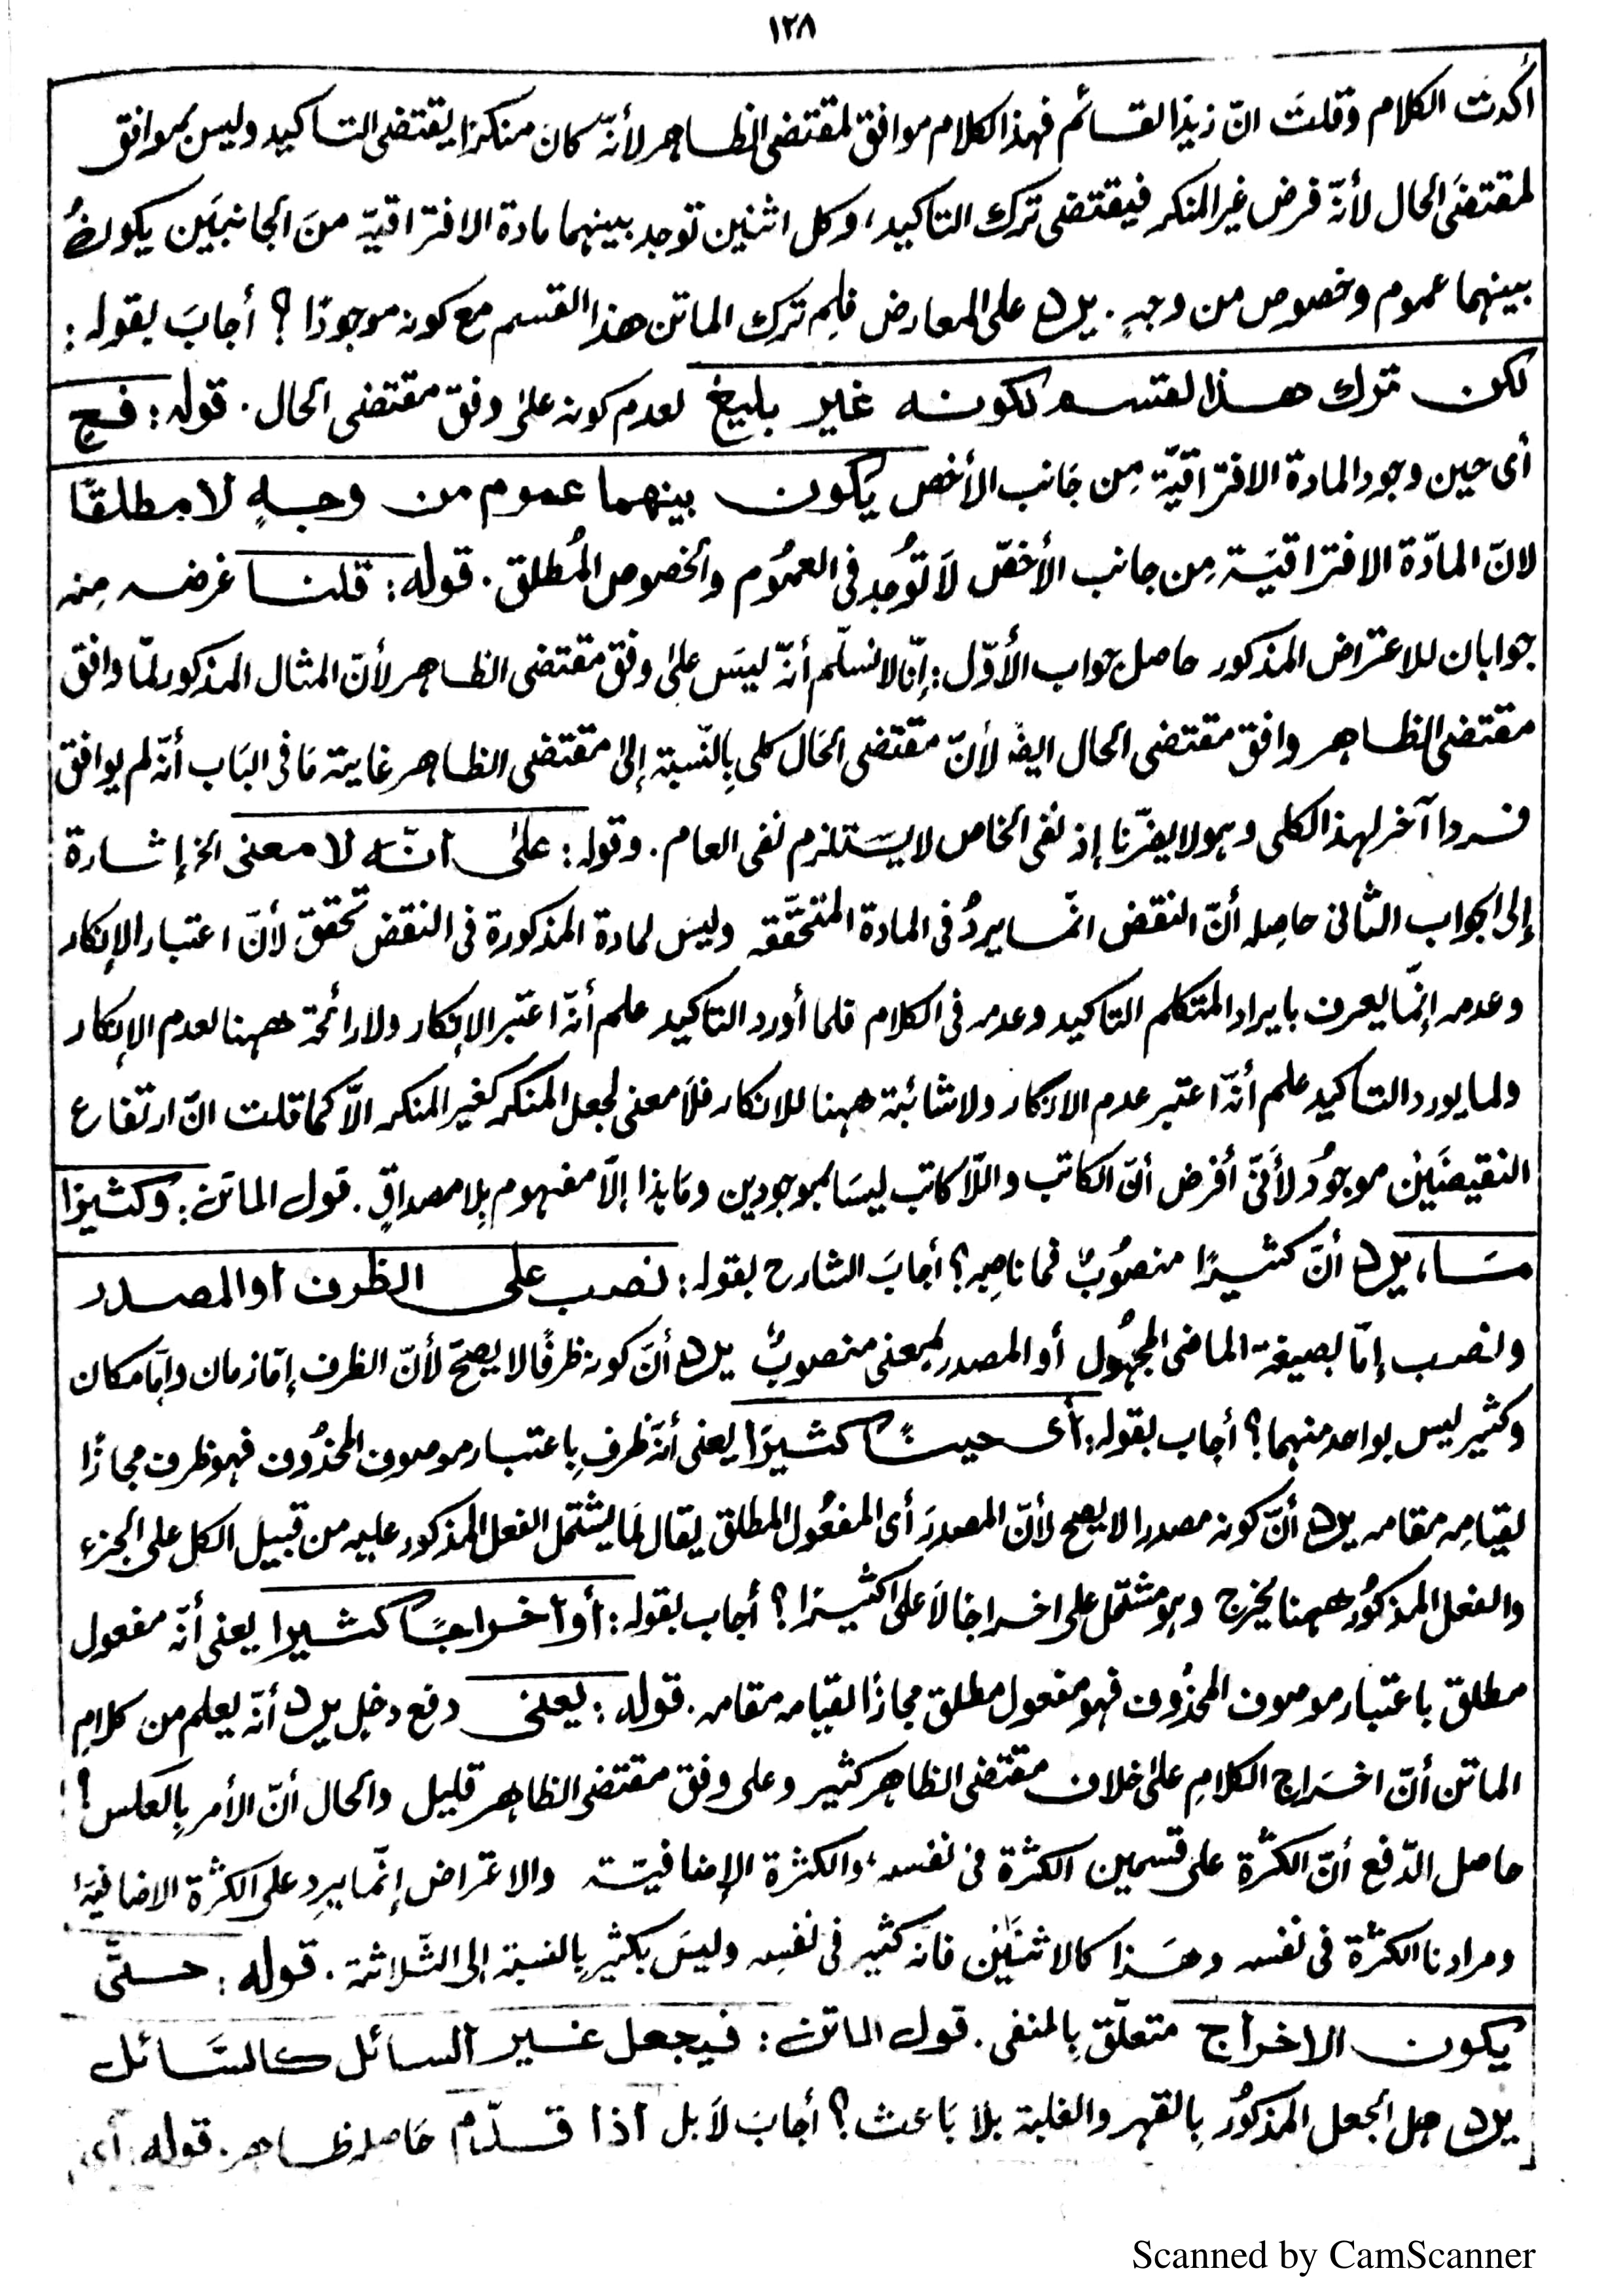 ١٢٨
أكدت الكلام وقلت انّ زيدًا لقائم فهذا الكلام موافق لمقتضى الظاهر لأنّه كان منكرًا يقتضى التاكيد وليس بموافق
لمقتضى الحال لأنّه فرض غير المنكر فيقتضى ترك التاكيد، وكل اثنين توجد بينهما مادة الافتراقيّة منَ الجانبَين يكون
بينهما عموم وخصوص من وجهٍ. يرد على المعارض فلِم ترك الماتن هذا القسم مع كونه موجودًا ؟ أجابَ بقوله :
لكن ترك هذا لقسم لكونه غير بليغ لعدم كونه على وفق مقتضى الحال. قوله : فح
أى حين وجود المادة الافتراقيّة مِن جَانب الأخص يكون بينهما عموم من وجهٍ لا مطلقًا
لانّ المادّة الافتراقيَة مِن جانب الأخصّ لَا تُوجد فى العمُوم والخصوص المُطلق. قوله : قلنا غرضه مِنه
جوابان للاعتراض المذكور حاصل جواب الأوّل : إنّا لا نسلّم أنّه ليسَ على وفق مقتضى الظاهر لأنّ المثال المذكور لمّا وافق
مقتضى الظاهر وافق مقتضى الحال ايضًا لأنّ مقتضى الحَال كلى بِالنّسبة إلى مقتضى الظاهر غاية مَا فى البَاب أنّه لم يوافق
فردا آخر لهذ الكلى وهو لا يضرّنا إذ نفى الخاص لا يستلزم نفى العام. وقوله : على انّه لا معنى الخ إشارة
إلى الجواب الثانى حاصِله أنّ النقض انّما يردُ فى المادة المتحقّقه وليسَ لمادة المذكورة فى النقض تحقق لأنّ اعتبار الإنكار
وعدمه إنّما يعرف بايراد المتكلم التاكيد وعدمه فى الكلام فلما أورد التاكيد علم أنّه اعتبر الإنكار ولا رائحة ههنا لعدم الإنكار
ولما يورد التاكيد علم أنّه اعتبر عدم الانكار ولا شائبة ههنا للانكار فلَا معنى لجعل المنكر كغير المنكر الّا كما قلت انّ ارتفاع
النقيضَيْن موجودٌ لأنّى أفرض أنّ الكاتب واللّا كاتب ليسَا بموجودين ومَا هذا إلّا مفهوم بِلا مصداقٍ. قول الماتن : وكثيرًا
مَا، يرد أنّ كثيرًا منصُوبٌ فما ناصِبه؟ أجابَ الشارح بقوله : نصب على الظرف او المصدر
ونصب إمّا بصيغة الماضى المجهُول أو المصدر بمعنى منصوبٌ يرد أنّ كونه ظرفًا لا يصحّ لأنّ الظرف إمّا زمان وإمّا مكان
وكثير ليس بواحد منهما؟ أجاب بقوله : أى حينًا كثيرًا يعنى أنّه ظرفٌ بِاعتبار موصوف المحذُوف فهو ظرف مجازًا
لقيامِه مقامه يرد أنّ كونه مصدرا لا يصح لأنّ المصدرَ أى المفعُول المطلق يقال لمَا يشتمل الفعل المذكور عليه من قبيل الكل على الجزء
والفعل المذكُور ههنا يخرج وهو مشتمل على اخراجا لَا على كثيرًا؟ أجاب بقوله : أو اخراجًا كثيرا يعنى أنّه مفعول
مطلق باعتبار موصوف المحذُوف فهو مفعول مطلق مجازًا لقيامه مقامه. قوله : يعنى دفع دخلٍ يرد أنّه يعلم من كلامِ
الماتن أنّ اخراج الكلامِ على خلاف مقتضى الظاهر كثير وعلى وفق مقتضى الظاهر قليل والحال أنّ الأمر بِالعكس!
حاصل الدّفع أنّ الكثرةِ على قسمين الكثرة فى نفسه، والكثرة الإضافيّة والاعتراض إنّما يردِ على الكثرة الاضافيّة
ومرادنا الكثرة فى نفسه وهذا كالاثنَيْن فانه كثير فى نفسِه وليسَ بكثير بِالنسبة إلى الثّلاثة. قوله : حتّى
يكون الاخراج متعلّق بِالمنفى. قول الماتن : فيجعل غير السائل كالسَّائل
يرد هل الجعل المذكُور بِالقهر والغلبة بلا بَاعث؟ أجابَ لَا بل اذا قدّم حَاصله ظاهر. قوله : أى
Scanned by CamScanner